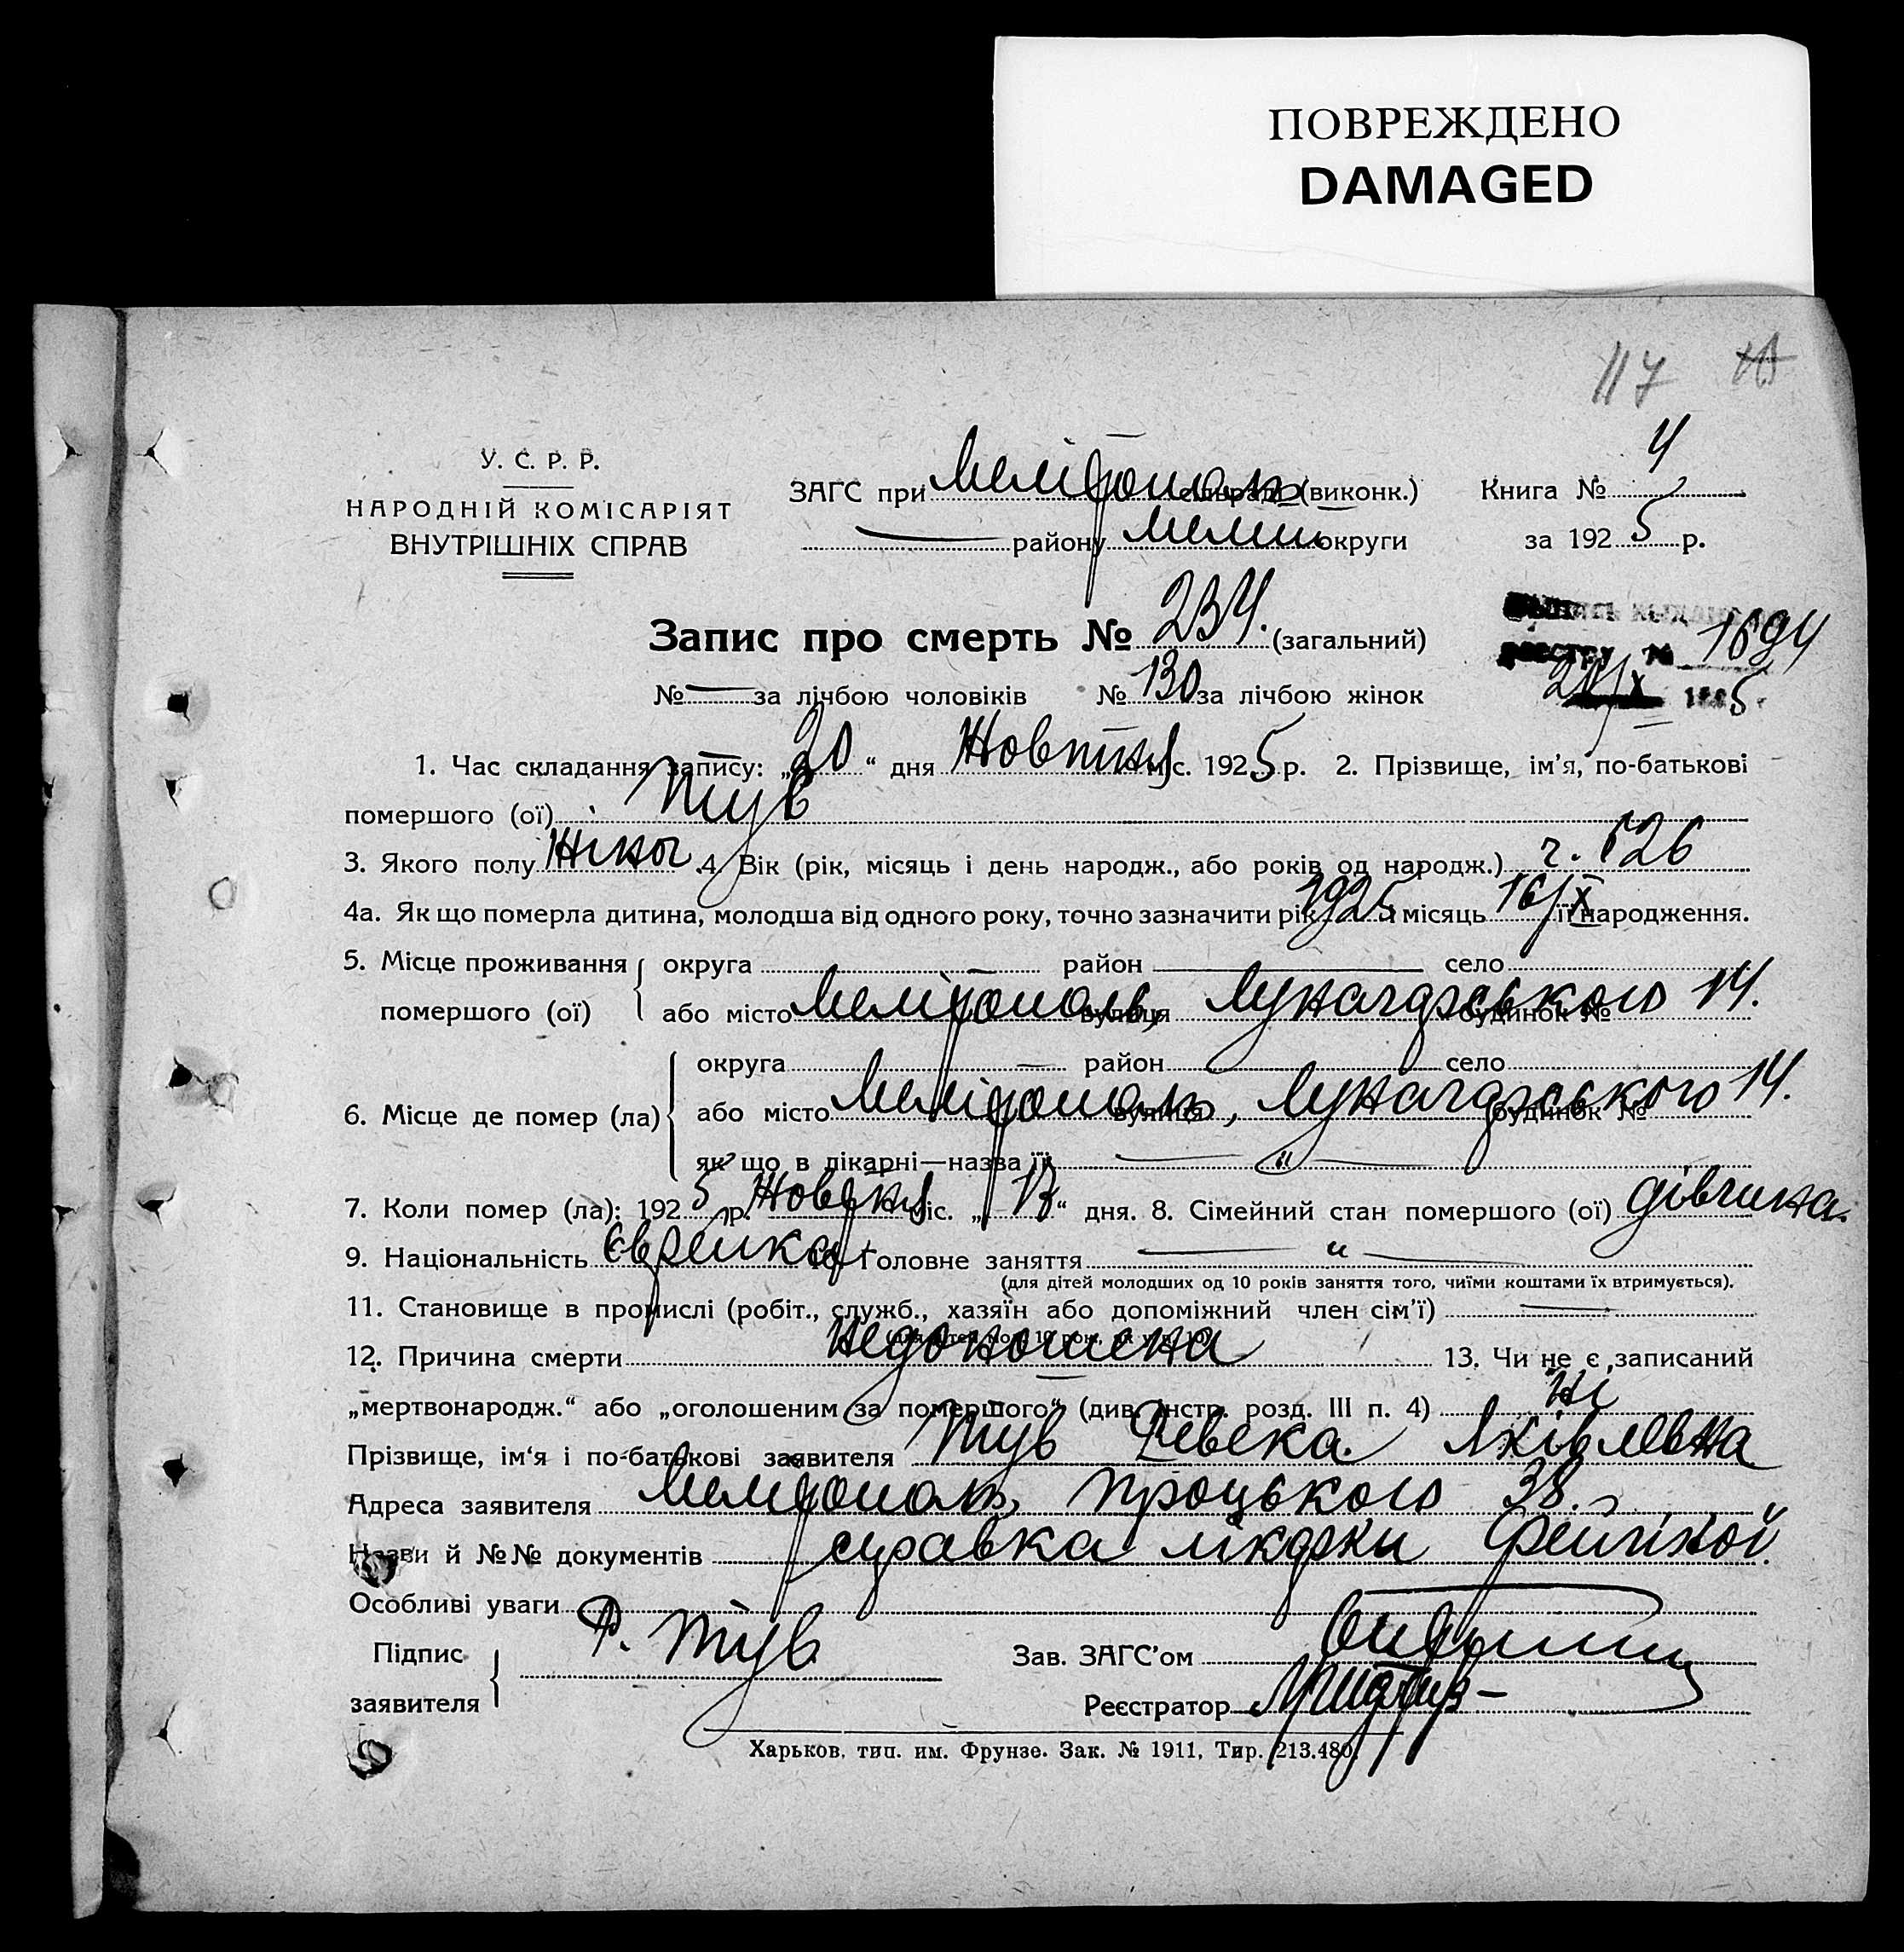 ПОВРЕЖДЕНО
DAMAGED
117
У. С. Р. Р.
НАРОДНІЙ КОМІСАРІЯТ
ВНУТРІШНІХ СПРАВ
ЗАГС при Мелітополь сільраді (виконк.)
району Мелит округи
Книга № 4
за 1925 р.
Запис про смерть № 234. (загальний)
№ — за лічбою чоловіків № 130 за лічбою жінок
реєстру № 1694
1. Час складання запису: „20“ дня Жовтня міс. 1925 р. 2. Прізвище, ім'я, по-батькові
помершого (ої) Тув
3. Якого полу Жіноч. 4. Вік (рік, місяць і день народж., або років од народж.)
4а. Як що померла дитина, молодша від одного року, точно зазначити рік 1925 і місяць 16/X її народження.
5. Місце проживання помершого (ої) { округа — район — село
або місто Мелітополь, вулиця Луначарського будинок № 14.
6. Місце де помер (ла) { округа — район село
або місто Мелітополь, вулиця Луначарського будинок № 14.
як що в лікарні—назва її — „ —
7. Коли помер (ла): 1925 р. Жовтня міс. „17“ дня. 8. Сімейний стан помершого (ої) дівчина.
9. Національність Єврейка 10. Головне заняття — „ —
(для дітей молодших од 10 років заняття того, чиїми коштами їх втримується).
11. Становище в промислі (робіт., служб., хазяїн або допоміжний член сім'ї) —
12. Причина смерти недоношена 13. Чи не є записаний
„мертвонародж.“ або „оголошеним за помершого“ (див. інстр. розд. III п. 4) ні
Прізвище, ім'я і по-батькові заявителя Тув Ревека Яківлевна
Адреса заявителя Мелітополь, Троцького 38.
Назви й №№ документів справка лікарки
Особливі уваги
Підпис заявителя { Р. Тув
Зав. ЗАГС'ом
Реєстратор
Харьков, тип. им. Фрунзе. Зак. № 1911, Тир. 213.480.